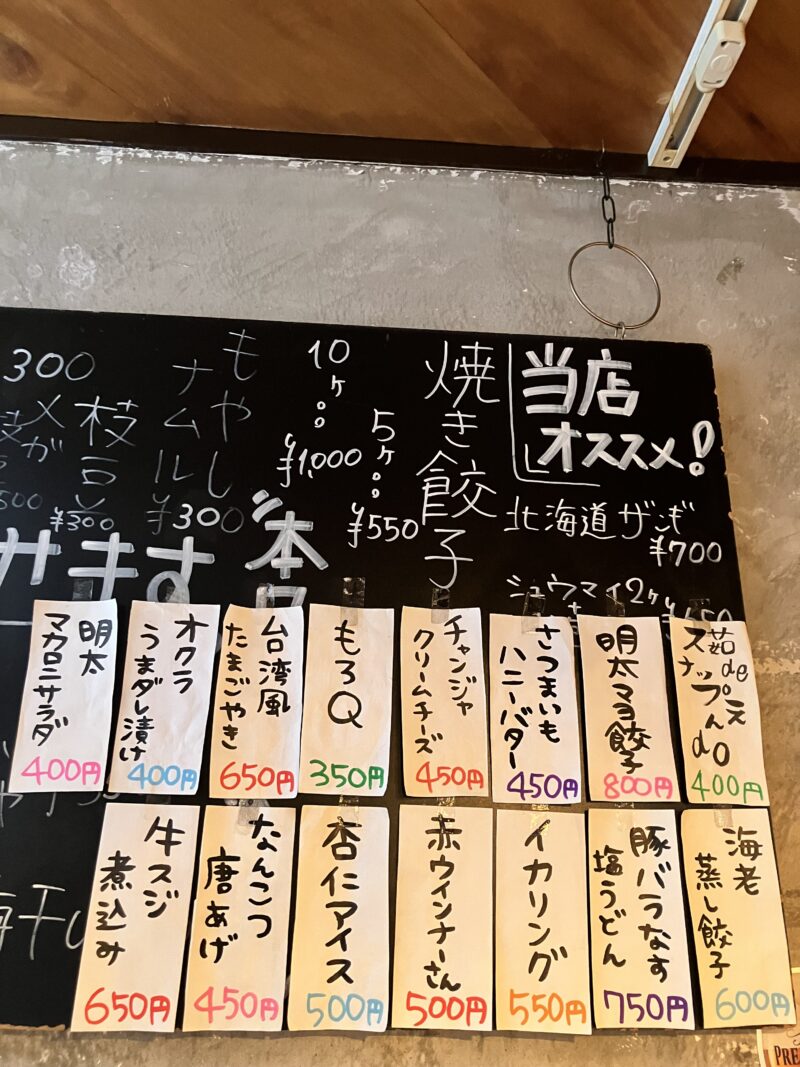 当店
オススメ!
北海道ザンギ
¥700
シュウマイ2ケ
焼き餃子
5ケ。。
¥550
10ケ。。
¥1,000
もやし
ナムル
¥300
枝豆
¥300
300
ます
茹de
スナップえ
んdo
400円
明太マヨ餃子
800円
さつまいも
ハニーバター
450円
チャンジャ
クリームチーズ
450円
もろQ
350円
台湾風
たまごやき
650円
オクラ
うまダレ漬け
400円
明太
マカロニサラダ
400円
海老
蒸し餃子
600円
豚バラなす
塩うどん
750円
イカリング
550円
赤ウインナーさん
500円
杏仁アイス
500円
なんこつ
唐あげ
450円
牛スジ
煮込み
650円